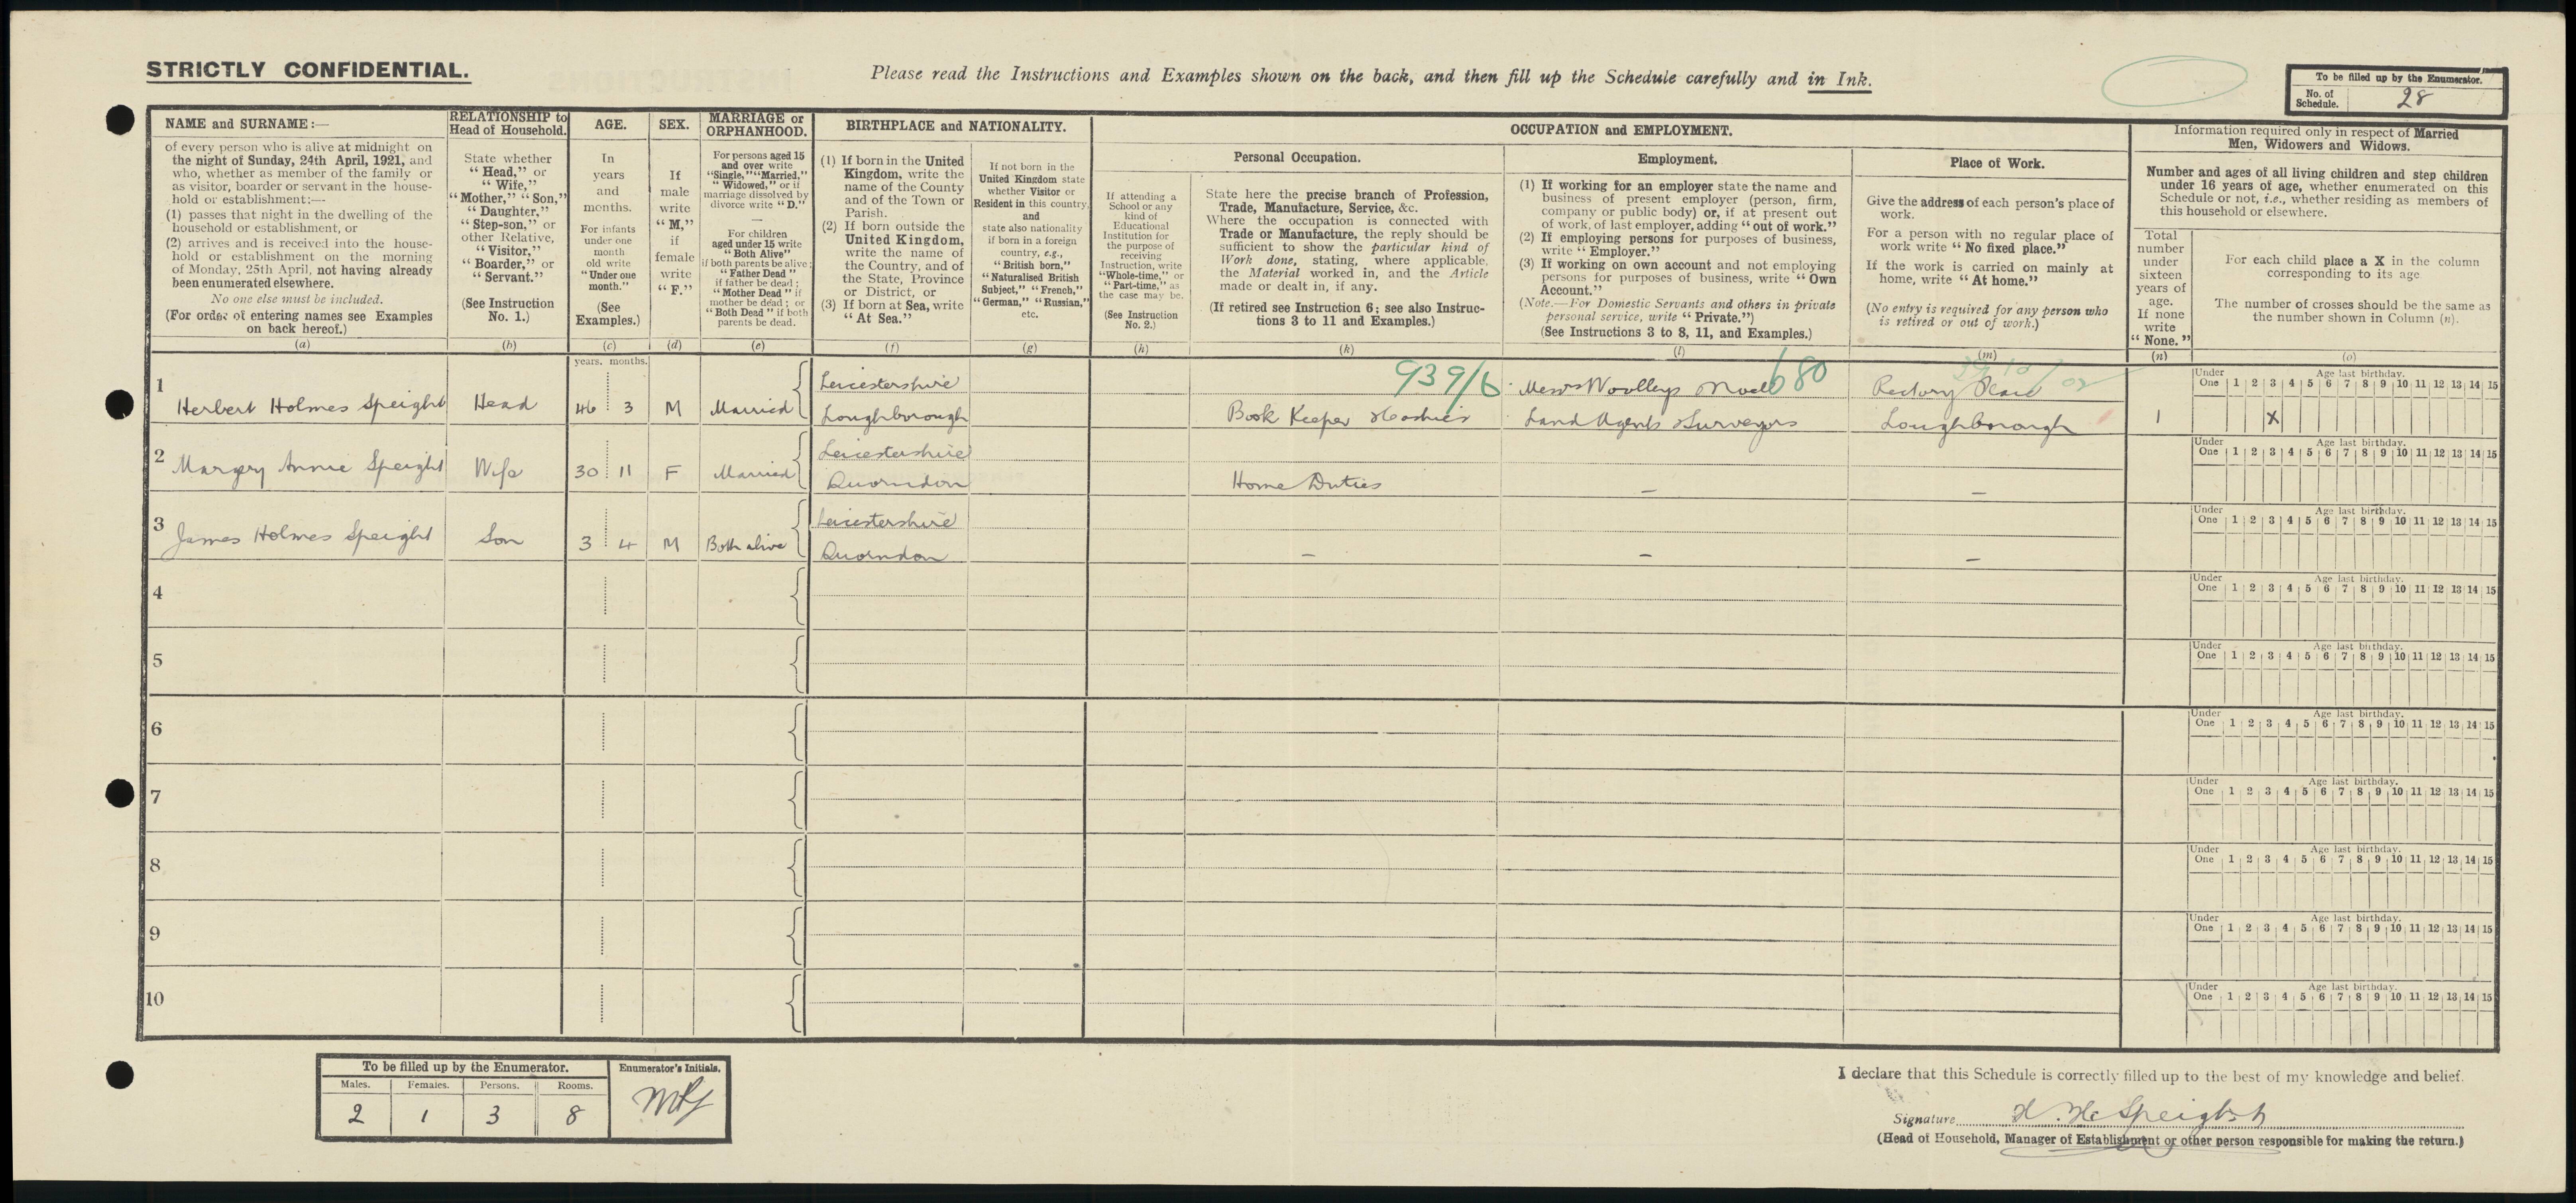 STRICTLY CONFIDENTIAL.
Please read the Instructions and Examples shown on the back, and then fill up the Schedule carefully and in Ink.
To be filled up by the Enumerator.
No. of Schedule. 28
NAME and SURNAME:—
of every person who is alive at midnight on
the night of Sunday, 24th April, 1921, and
who, whether as member of the family or
as visitor, boarder or servant in the house-
hold or establishment:—
(1) passes that night in the dwelling of the
household or establishment, or
(2) arrives and is received into the house-
hold or establishment on the morning
of Monday, 25th April, not having already
been enumerated elsewhere.
No one else must be included.
(For order of entering names see Examples
on back hereof.)
(a)
RELATIONSHIP to
Head of Household.
State whether
"Head," or
"Wife,"
"Mother," "Son,"
"Daughter,"
"Step-son," or
other Relative,
"Visitor,"
"Boarder," or
"Servant."
(See Instruction
No. 1.)
(b)
AGE.
In
years
and
months.
For infants
under one
month
old write
"Under one
month."
(See
Examples.)
(c)
SEX.
If
male
write
"M,"
if
female
write
"F."
(d)
MARRIAGE or
ORPHANHOOD.
For persons aged 15
and over write
"Single," "Married,"
"Widowed," or if
marriage dissolved by
divorce write "D."
—
For children
aged under 15 write
"Both Alive"
if both parents be alive;
"Father Dead"
if father be dead;
"Mother Dead" if
mother be dead; or
"Both Dead" if both
parents be dead.
(e)
BIRTHPLACE and NATIONALITY.
(1) If born in the United
Kingdom, write the
name of the County
and of the Town or
Parish.
(2) If born outside the
United Kingdom,
write the name of
the Country, and of
the State, Province
or District, or
(3) If born at Sea, write
"At Sea."
(f)
If not born in the
United Kingdom state
whether Visitor or
Resident in this country,
and
state also nationality
if born in a foreign
country, e.g.,
"British born,"
"Naturalised British
Subject," "French,"
"German," "Russian,"
etc.
(g)
OCCUPATION and EMPLOYMENT.
If attending a
School or any
kind of
Educational
Institution for
the purpose of
receiving
Instruction, write
"Whole-time," or
"Part-time," as
the case may be.
(See Instruction
No. 2.)
(h)
Personal Occupation.
State here the precise branch of Profession,
Trade, Manufacture, Service, &c.
Where the occupation is connected with
Trade or Manufacture, the reply should be
sufficient to show the particular kind of
Work done, stating, where applicable,
the Material worked in, and the Article
made or dealt in, if any.
(If retired see Instruction 6; see also Instruc-
tions 3 to 11 and Examples.)
(k)
Employment.
(1) If working for an employer state the name and
business of present employer (person, firm,
company or public body) or, if at present out
of work, of last employer, adding "out of work."
(2) If employing persons for purposes of business,
write "Employer."
(3) If working on own account and not employing
persons for purposes of business, write "Own
Account."
(Note.—For Domestic Servants and others in private
personal service, write "Private.")
(See Instructions 3 to 8, 11, and Examples.)
(l)
Place of Work.
Give the address of each person's place of
work.
For a person with no regular place of
work write "No fixed place."
If the work is carried on mainly at
home, write "At home."
(No entry is required for any person who
is retired or out of work.)
(m)
Information required only in respect of Married
Men, Widowers and Widows.
Number and ages of all living children and step children
under 16 years of age, whether enumerated on this
Schedule or not, i.e., whether residing as members of
this household or elsewhere.
Total
number
under
sixteen
years of
age.
If none
write
"None."
(n)
For each child place a X in the column
corresponding to its age
The number of crosses should be the same as
the number shown in Column (n).
(o)
years. months.
939/6 680
1 Herbert Holmes Speight Head 46 3 M Married Leicestershire Loughborough Book Keeper Cashier Messrs Woolleys
Land Agents Surveyors Rectory Place Loughborough 1 X
Under One 1 2 3 4 5 6 7 8 9 10 11 12 13 14 15
Age last birthday.
2 Margery Annie Speight Wife 30 11 F Married Leicestershire Quorndon Home Duties — —
Under One 1 2 3 4 5 6 7 8 9 10 11 12 13 14 15
Age last birthday.
3 James Holmes Speight Son 3 4 M Both alive Leicestershire Quorndon — — —
Under One 1 2 3 4 5 6 7 8 9 10 11 12 13 14 15
Age last birthday.
4
Under One 1 2 3 4 5 6 7 8 9 10 11 12 13 14 15
Age last birthday.
5
Under One 1 2 3 4 5 6 7 8 9 10 11 12 13 14 15
Age last birthday.
6
Under One 1 2 3 4 5 6 7 8 9 10 11 12 13 14 15
Age last birthday.
7
Under One 1 2 3 4 5 6 7 8 9 10 11 12 13 14 15
Age last birthday.
8
Under One 1 2 3 4 5 6 7 8 9 10 11 12 13 14 15
Age last birthday.
9
Under One 1 2 3 4 5 6 7 8 9 10 11 12 13 14 15
Age last birthday.
10
Under One 1 2 3 4 5 6 7 8 9 10 11 12 13 14 15
Age last birthday.
To be filled up by the Enumerator.
Males. Females. Persons. Rooms.
2 1 3 8
Enumerator's Initials.
I declare that this Schedule is correctly filled up to the best of my knowledge and belief.
Signature H. H. Speight
(Head of Household, Manager of Establishment or other person responsible for making the return.)